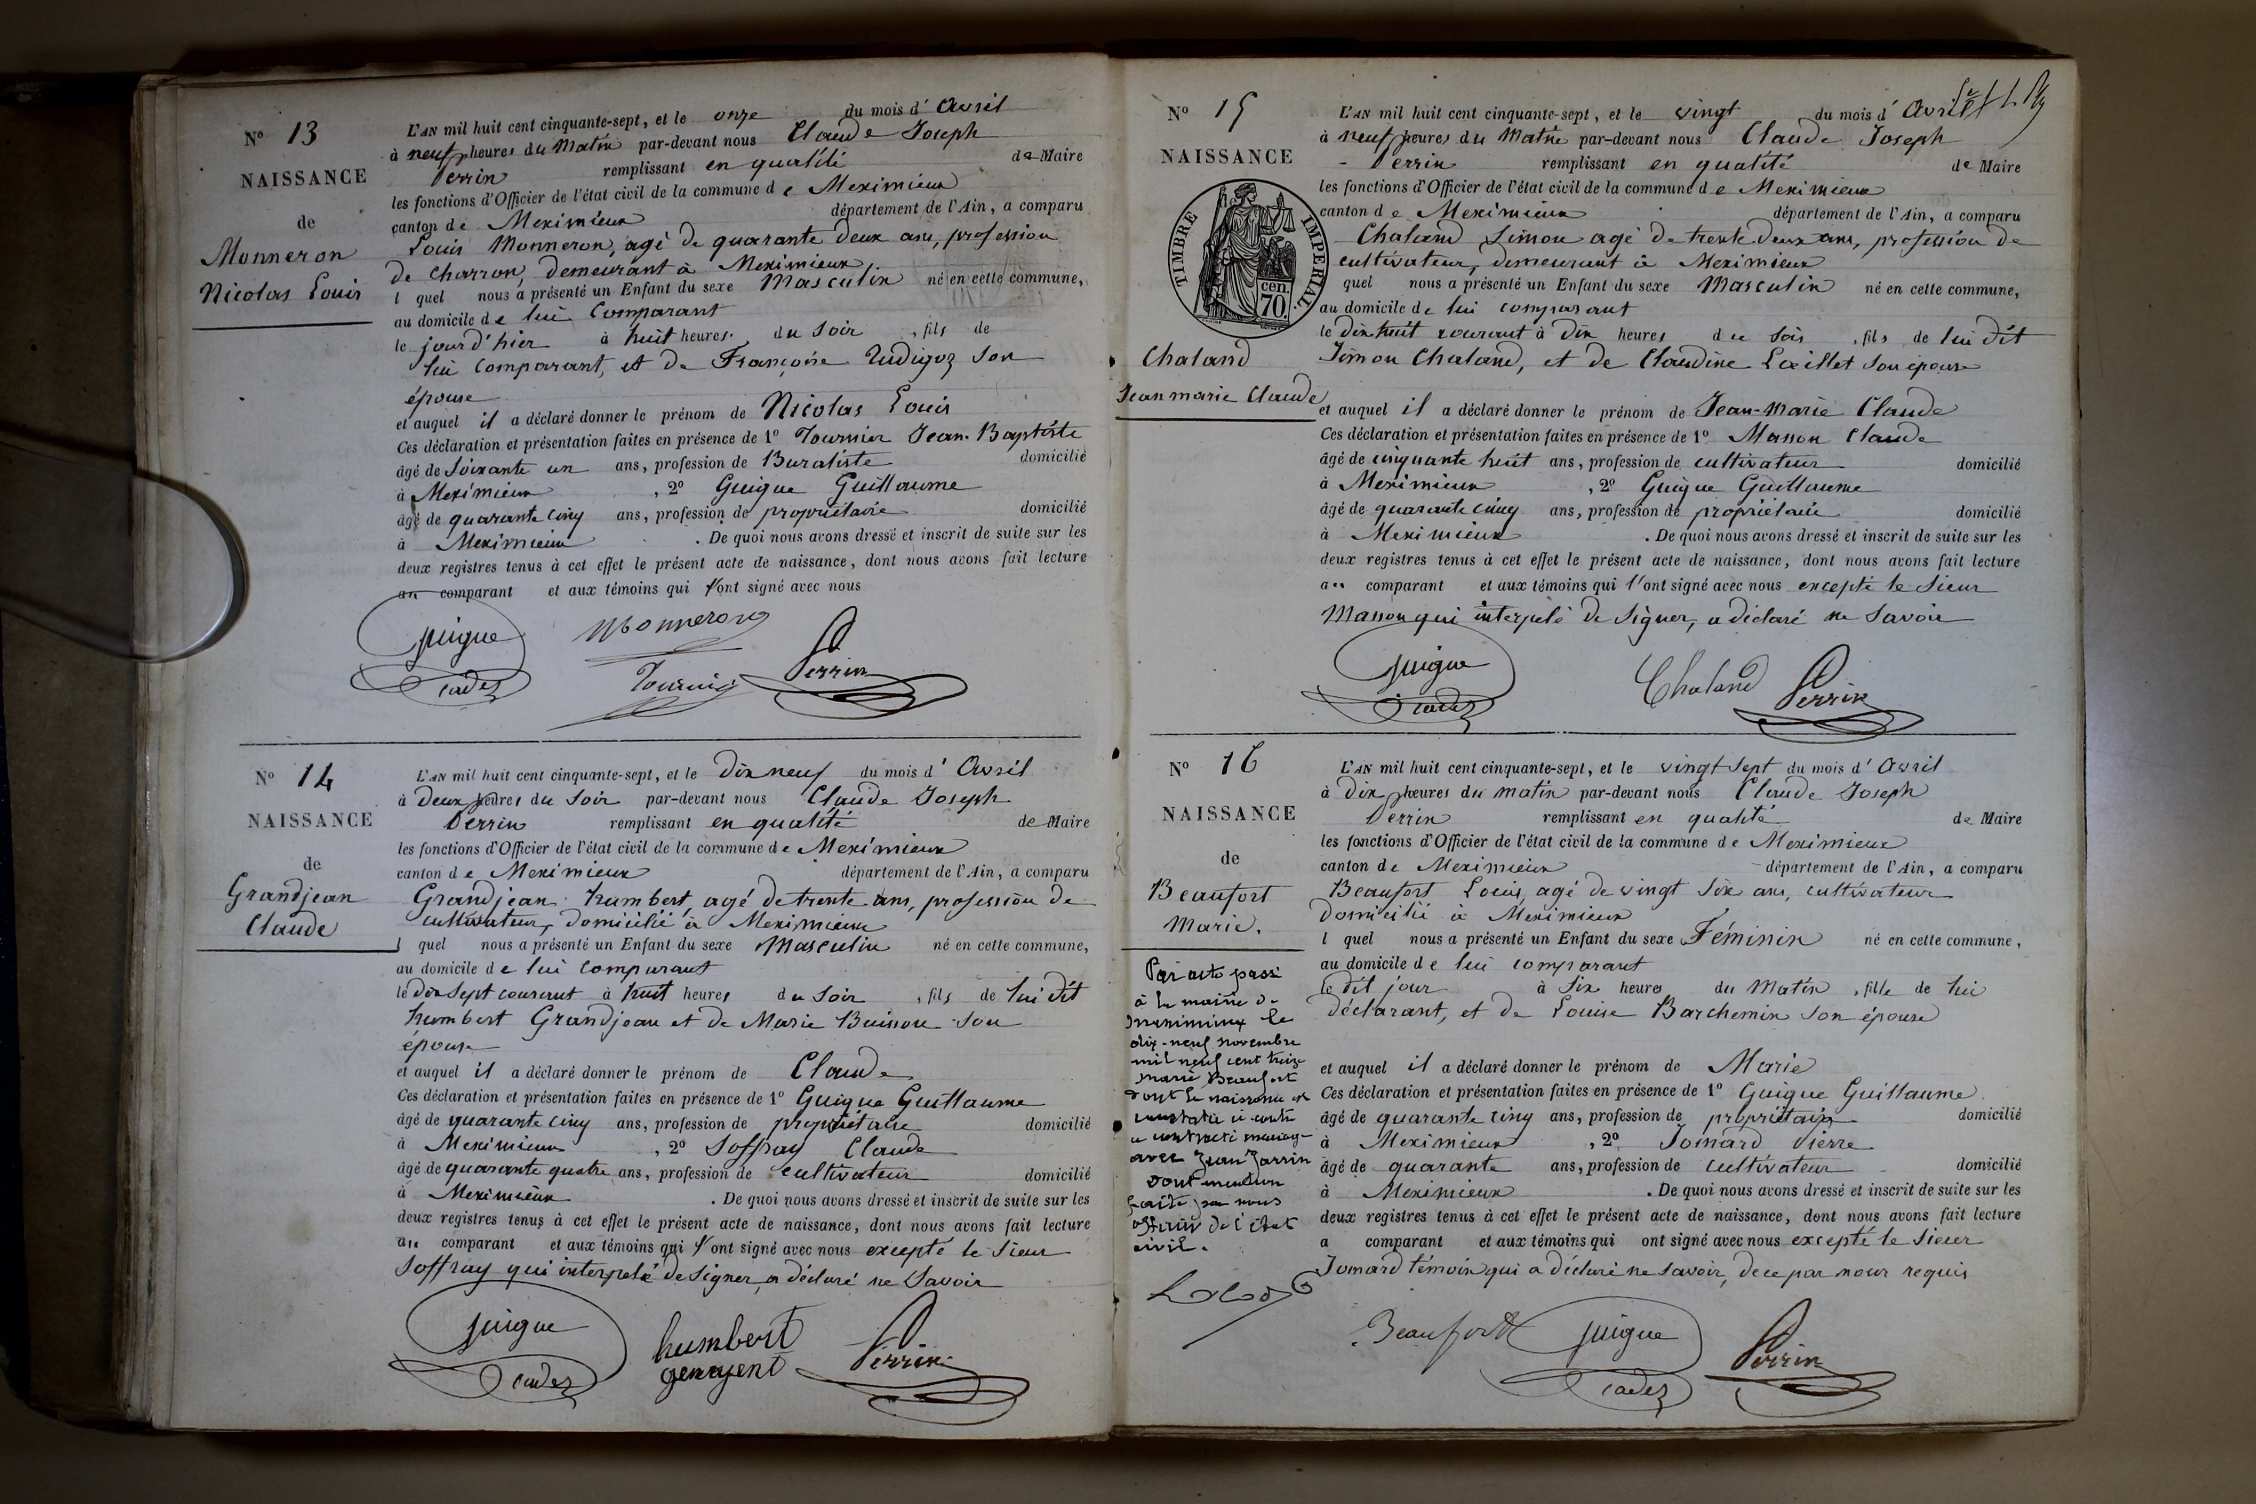 N° 13
NAISSANCE
de
Monneron
Nicolas Louis
L'AN mil huit cent cinquante-sept, et le onze du mois d' Avril
à neuf heures du Matin par-devant nous Claude Joseph
Perrin remplissant en qualité de Maire
les fonctions d'Officier de l'état civil de la commune de Meximieux
canton de Meximieux département de l'Ain, a comparu
Louis Monneron, agé de quarante deux ans, profession
de charron, demeurant à Meximieux
l quel nous a présenté un Enfant du sexe Masculin né en cette commune,
au domicile de lui Comparant
le jour d'hier à huit heures du Soir , fils de
lui Comparant, et de Françoise Rudigoz son
épouse
et auquel il a déclaré donner le prénom de Nicolas Louis
Ces déclaration et présentation faites en présence de 1° Tournier Jean-Baptiste
âgé de Soixante un ans, profession de Buraliste domicilié
à Meximieux , 2° Guigue Guillaume
âgé de quarante cinq ans, profession de propriétaire domicilié
à Meximieux . De quoi nous avons dressé et inscrit de suite sur les
deux registres tenus à cet effet le présent acte de naissance, dont nous avons fait lecture
au comparant et aux témoins qui l'ont signé avec nous
Guigue Monneron Perrin
cadez Tournier
N° 14
NAISSANCE
de
Grandjean
Claude
L'AN mil huit cent cinquante-sept, et le dix neuf du mois d' Avril
à Deux heures du Soir par-devant nous Claude Joseph
Perrin remplissant en qualité de Maire
les fonctions d'Officier de l'état civil de la commune de Meximieux
canton de Meximieux département de l'Ain, a comparu
Grandjean humbert, agé de trente ans, profession de
cultivateur, domicilié à Meximieux
l quel nous a présenté un Enfant du sexe Masculin né en cette commune,
au domicile de lui comparant
le Dix Sept courant à huit heures du Soir , fils de lui dit
humbert Grandjean et de Marie Buisson son
épouse
et auquel il a déclaré donner le prénom de Claude
Ces déclaration et présentation faites en présence de 1° Guigue Guillaume
âgé de quarante cinq ans, profession de propriétaire domicilié
à Meximieux , 2° Soffray Claude
âgé de quarante quatre ans, profession de cultivateur domicilié
à Meximieux . De quoi nous avons dressé et inscrit de suite sur les
deux registres tenus à cet effet le présent acte de naissance, dont nous avons fait lecture
au comparant et aux témoins qui l'ont signé avec nous excepté le Sieur
Soffray qui interpelé de Signer, a déclaré ne Savoir
Guigue humbert Perrin
cadez
N° 15
NAISSANCE
TIMBRE IMPERIAL.
cen.
70.
Chaland
Jean marie Claude
L'AN mil huit cent cinquante-sept, et le vingt du mois d' Avril
à neuf heures du Matin par-devant nous Claude Joseph
Perrin remplissant en qualité de Maire
les fonctions d'Officier de l'état civil de la commune de Meximieux
canton de Meximieux département de l'Ain, a comparu
Chaland Simon agé de trente deux ans, profession de
cultivateur, demeurant à Meximieux
quel nous a présenté un Enfant du sexe Masculin né en cette commune,
au domicile de lui comparant
le dix huit courant à dix heures du Soir , fils de lui dit
Simon Chaland, et de Claudine Lœillet son épouse
et auquel il a déclaré donner le prénom de Jean-Marie Claude
Ces déclaration et présentation faites en présence de 1° Masson Claude
âgé de cinquante huit ans, profession de cultivateur domicilié
à Meximieux , 2° Guigue Guillaume
âgé de quarante cinq ans, profession de propriétaire domicilié
à Meximieux . De quoi nous avons dressé et inscrit de suite sur les
deux registres tenus à cet effet le présent acte de naissance, dont nous avons fait lecture
au comparant et aux témoins qui l'ont signé avec nous excepté le Sieur
Masson qui interpelé de Signer, a déclaré ne Savoir
Guigue Chaland Perrin
cadez
N° 16
NAISSANCE
de
Beaufort
Marie.
Par acte passé
à la mairie de
Meximieux le
dix-neuf novembre
mil neuf cent treize
Marie Beaufort
dont la naissance est
constatée ci-contre
a contracté mariage
avec Jean Jarrin
dont mention
faite par nous
officier de l'état
civil.
L'AN mil huit cent cinquante-sept, et le vingt Sept du mois d' Avril
à Dix heures du matin par-devant nous Claude Joseph
Perrin remplissant en qualité de Maire
les fonctions d'Officier de l'état civil de la commune de Meximieux
canton de Meximieux département de l'Ain, a comparu
Beaufort Louis, agé de vingt Six ans, cultivateur
Domicilié à Meximieux
l quel nous a présenté un Enfant du sexe Féminin né en cette commune,
au domicile de lui comparant
le dit jour à Six heures du Matin , fille de lui
déclarant, et de Louise Barchemin son épouse
et auquel il a déclaré donner le prénom de Marie
Ces déclaration et présentation faites en présence de 1° Guigue Guillaume
âgé de quarante cinq ans, profession de propriétaire domicilié
à Meximieux , 2° Jomard Pierre
âgé de quarante ans, profession de cultivateur domicilié
à Meximieux . De quoi nous avons dressé et inscrit de suite sur les
deux registres tenus à cet effet le présent acte de naissance, dont nous avons fait lecture
a comparant et aux témoins qui ont signé avec nous excepté le Sieur
Jomard témoin qui a déclaré ne savoir, de ce par nous requis
Beaufort Guigue Perrin
cadez